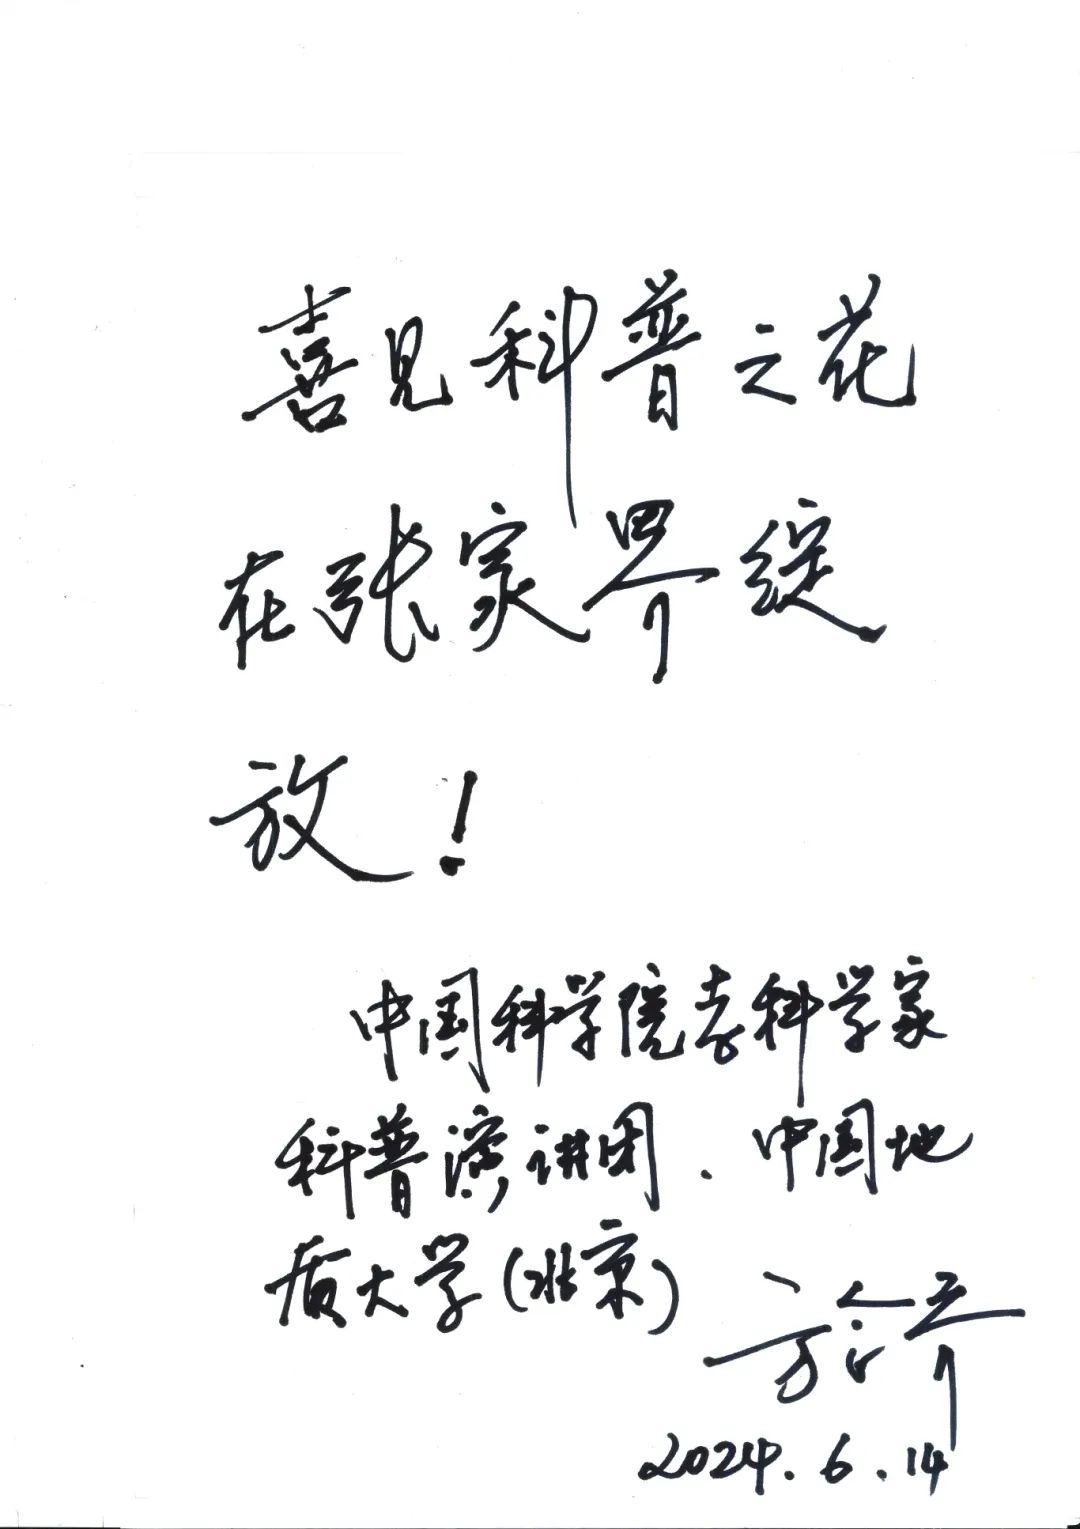 喜见科普之花
在张家界绽
放！
中国科学院老科学家
科普演讲团．中国地
质大学（北京）
方念乔
2024.6.14